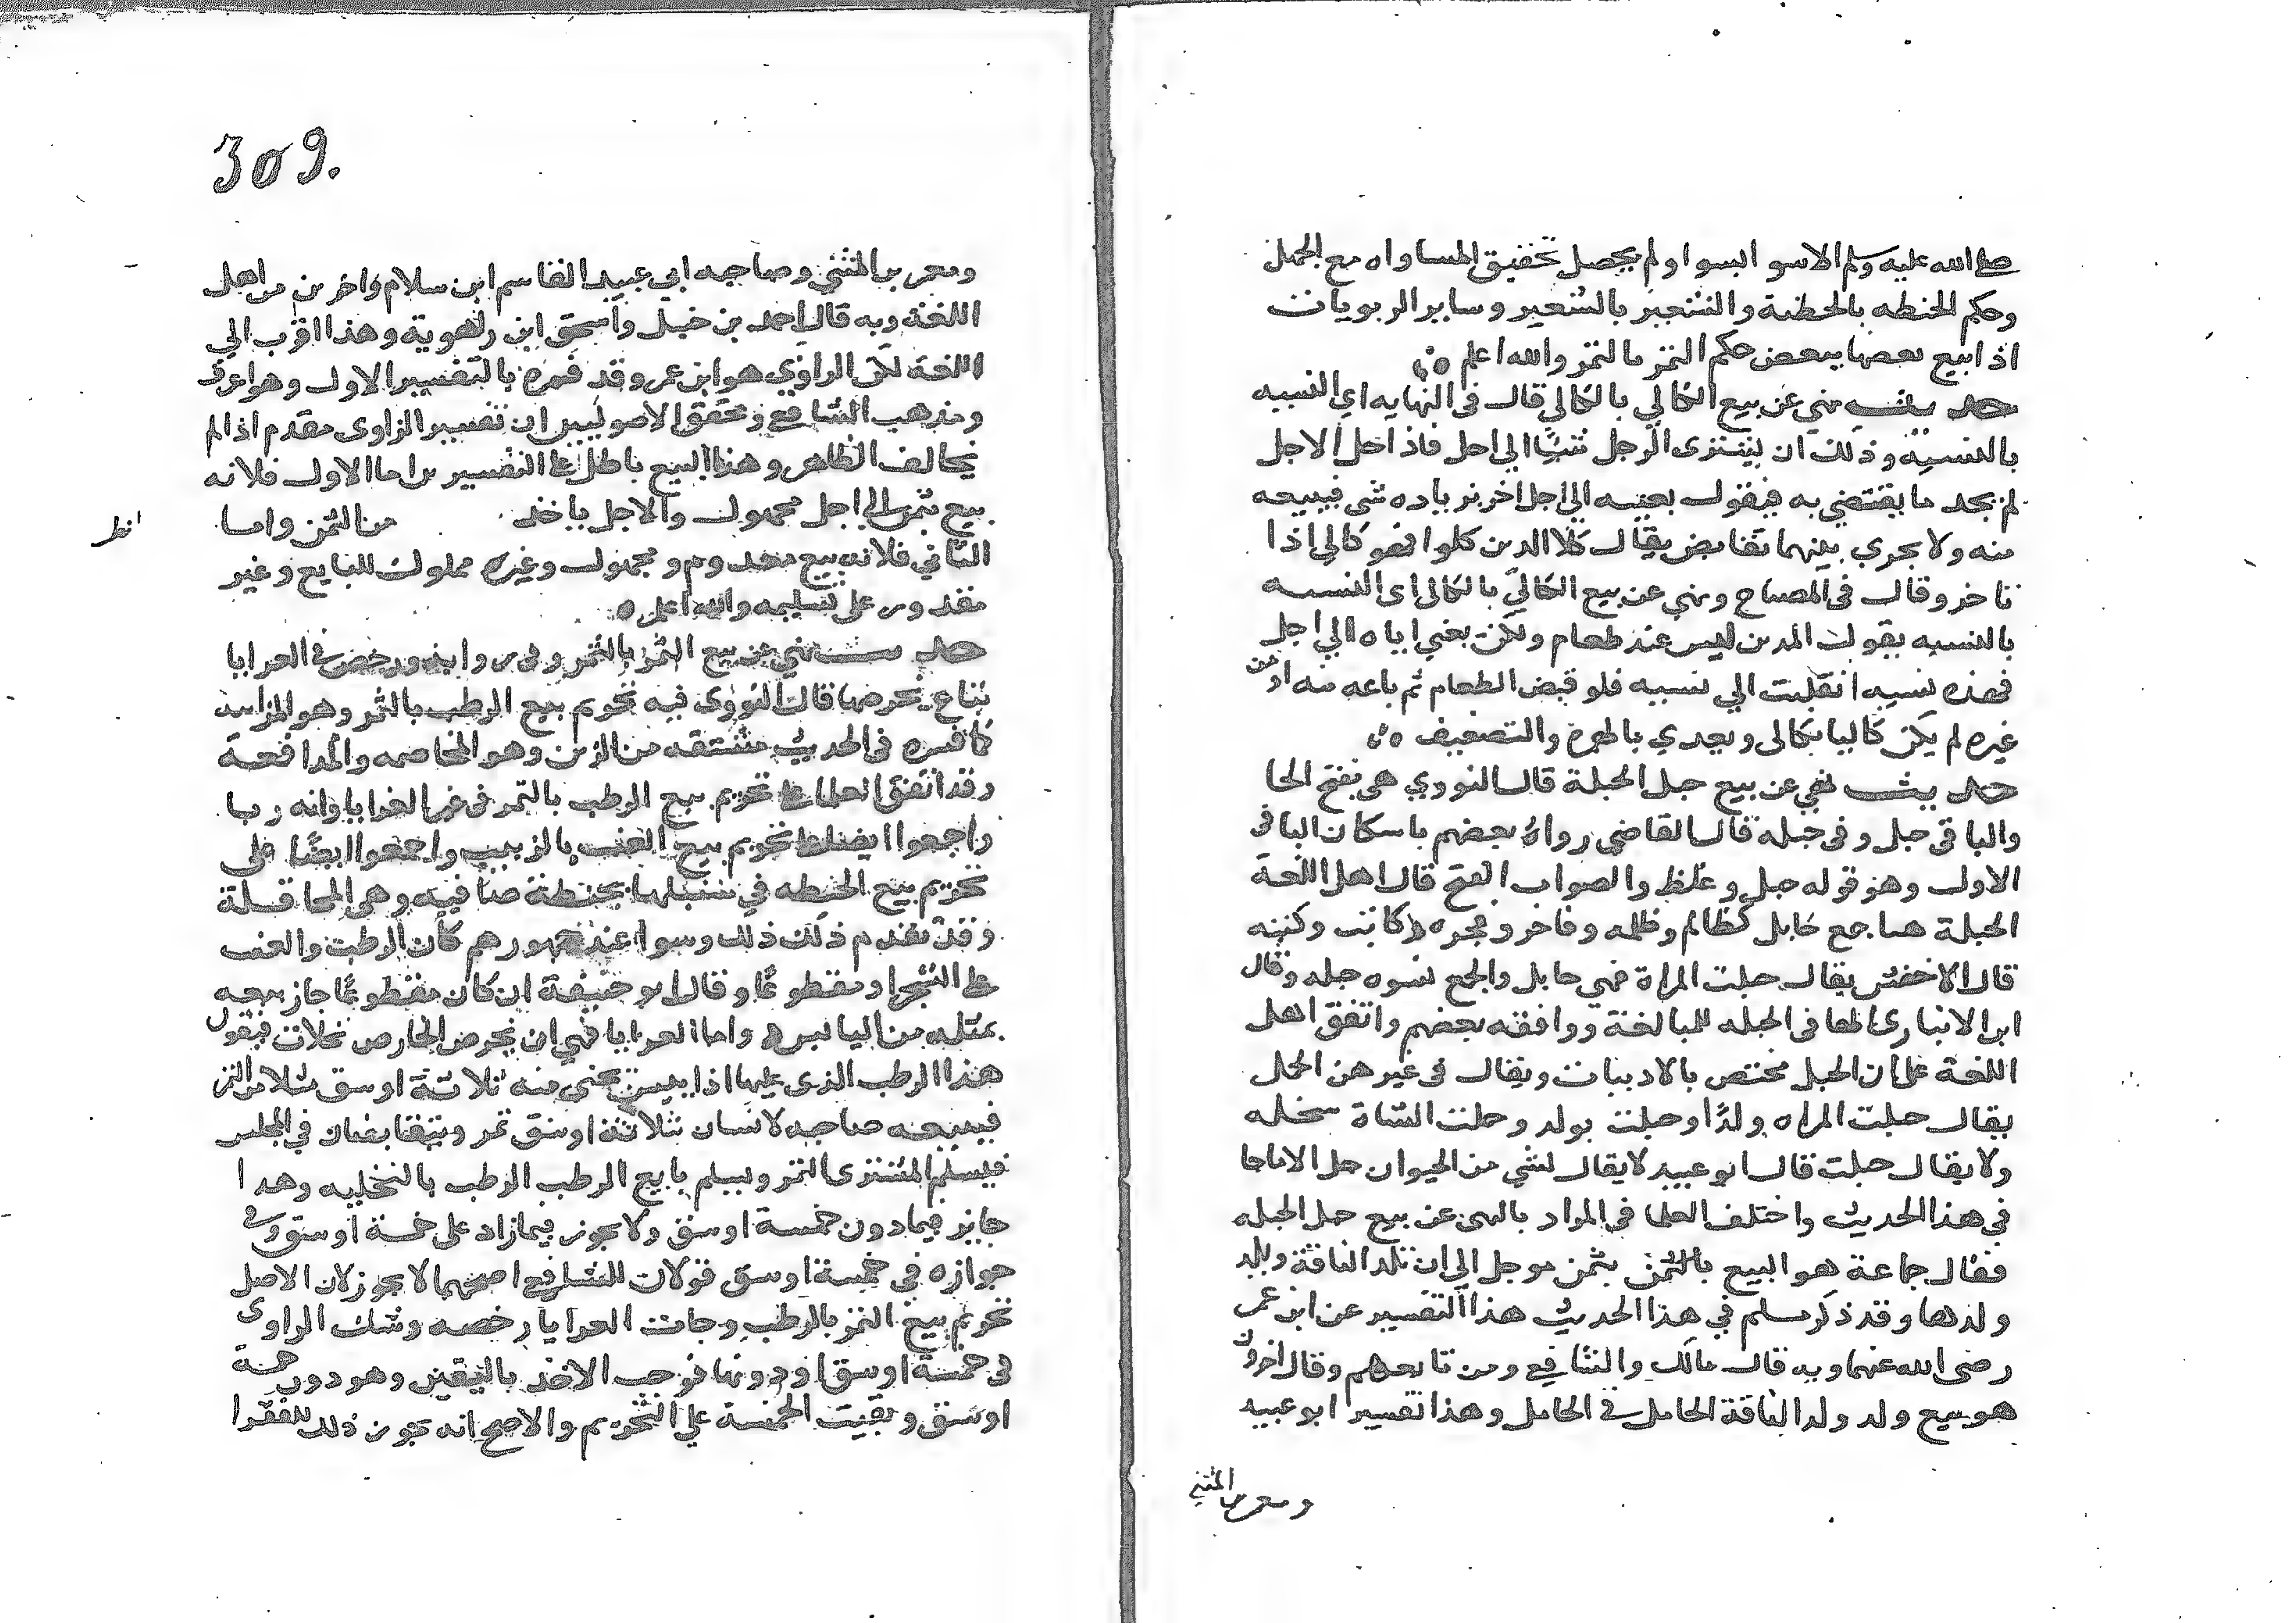 صلى الله عليه وسلم الاسوا بسوا ولم يحصل تحقيق المساواه مع الجهل
وحكم الحنطه بالحنطة والشعير بالشعير وساير الربويات
اذا بيع بعضها ببعض حكم التمر بالتمر والله اعلم
حديث نهي عن بيع الكالي بالكالي قال في النهايه اي النسيه
بالنسيه وذلك ان يشتري الرجل شيئا الي اجل فاذا حل الاجل
لم يجد ما يقتضي به فيقول بعنيه الي اجل اخر بزياده شي فيبيعه
منه ولا يجري بينهما تقابض يقال كلا الدين كلوا فهو كالي اذا
تاخر وقال في المصباح ونهي عن بيع الكالي بالكالي اي النسيه
بالنسيه يقول المدين ليس عند طعام ولكن بعني اياه الي اجل
فهذه نسيه انقلبت الي نسيه فلو قبض الطعام ثم باعه منه او من
غيره لم يكن كاليا بكالي ويعدي بالهمزة والتضعيف
حديث نهي عن بيع حبل الحبلة قال النووي هي بفتح الحا
والبا في حبل وفي حبله قال القاضي رواه بعضهم باسكان البا في
الاول وهو قوله حبل وغلط والصواب الفتح قال اهل اللغة
الحبلة هنا جمع حابل كظالم وظلمه وفاجر وفجره وكاتب وكتبه
قال الاخفش يقال حبلت المراة فهي حابل والجمع نسوه حبله وقال
ابن الانباري الها في الحبله للمبالغة ووافقه بعضهم واتفق اهل
اللغة على ان الحبل مختص بالادميات ويقال في غيرهن الحمل
يقال حبلت المراه ولدا وحبلت بولد وحملت الشاة سخله
ولا يقال حبلت قال ابو عبيد لا يقال لشي من الحيوان حبل الا ما جا
في هذا الحديث واختلف العلما في المراد بالنهي عن بيع حبل الحبله
فقال جماعة هو البيع بالثمن بثمن موجل الي ان تلد الناقة ويلد
ولدها وقد ذكر مسلم في هذا الحديث هذا التفسير عن ابن عمر
رضى الله عنهما وبه قال مالك والشافعي ومن تابعهم وقال اخرون
هو بيع ولد ولد الناقة الحامل في الحامل وهذا تفسير ابو عبيد
ومعمر بن المثني
309.
ومعمر بن المثني وصاحبه ابي عبيد القاسم ابن سلام واخرين من اهل
اللغة وبه قال احمد بن حنبل واسحق ابن راهوية وهذا اقرب الي
اللغة لكن الراوي هو ابن عمر وقد فسره بالتفسير الاول وهو اعرف
ومذهب الشافعي ومحققي الاصوليين ان تفسير الراوى مقدم اذا لم
يخالف الظاهر وهذا البيع باطل على التفسيرين اما الاول فلانه
بيع بثمن الي اجل مجهول والاجل ياخذ من الثمن واما
انظر
الثاني فلانه بيع معدوم ومجهول وغير مملوك للبايع وغير
مقدور على تسليمه والله اعلم
حديث نهي عن بيع الثمر بالتمر وفي روايه ورخص في العرايا
تباع بخرصها قال النووى فيه تحريم بيع الرطب بالتمر وهو المزابنه
كما فسره في الحديث مشتقه من الزبن وهو المخاصمه والمدافعة
وقد اتفق العلما على تحريم بيع الرطب بالتمر في غير العرايا وانه ربا
واجمعوا ايضا على تحريم بيع العنب بالزبيب واجمعوا ايضا على
تحريم بيع الحنطه في سنبلها بحنطة صافيه وهي المحاقلة
وقد تقدم ذلك ذلك وسوا عند جمهورهم كان الرطب والعنب
على الشجر او مقطوعا وقال ابو حنيفة ان كان مقطوعا جاز بيعه
بمثله من اليابس واما العرايا فهي ان يخرص الخارص نخلات فيقول
هذا الرطب الذى عليها اذا يبس يجني منه ثلاثة اوسق مثلا من التمر
فيبيعه صاحبه لانسان بثلاثة اوسق تمر ويتقابضان في المجلس
فيسلم المشترى التمر ويسلم بايع الرطب الرطب بالتخليه وهذا
جايز فيما دون خمسة اوسق ولا يجوز فيما زاد على خمسة اوسق وفي
جوازه في خمسة اوسق قولان للشافعي اصحهما لا يجوز لان الاصل
تحريم بيع التمر بالرطب وجات العرايا رخصه وشك الراوى
في خمسة اوسق او دونها فوجب الاخذ باليقين وهو دون خمسة
اوسق وبقيت الخمسة علي التحريم والاصح انه يجوز ذلك للفقرا